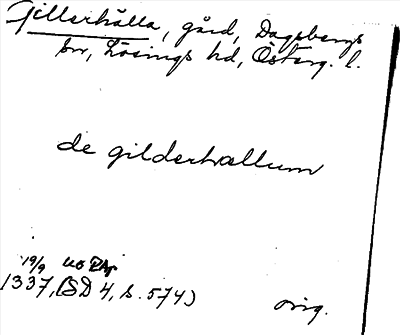 Gillerhälla, gård, Dagsbergs
sn, Lösings hd, Österg. l.
de gilderhællum
19/9 uo RAp
1337, (SD 4, s. 574)
orig.